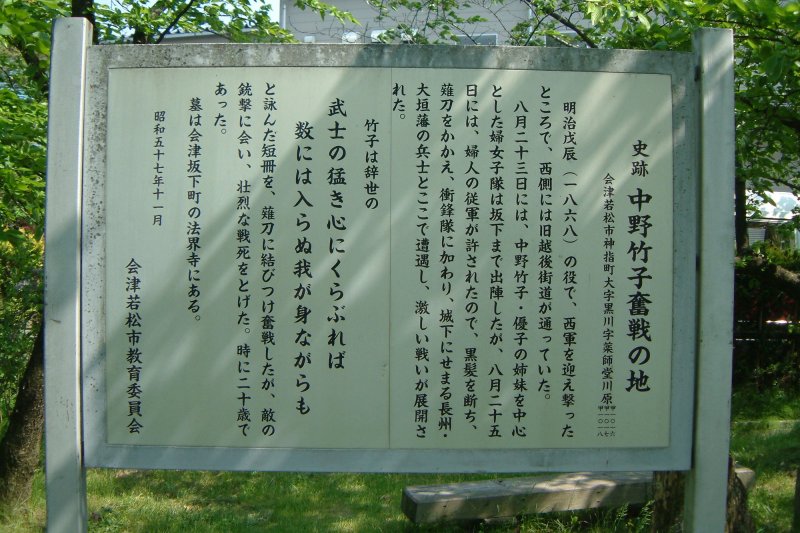 史跡 中野竹子奮戦の地
会津若松市神指町大字黒川字薬師堂川原
明治戊辰（一八六八）の役で、西軍を迎え撃った
ところで、西側には旧越後街道が通っていた。
八月二十三日には、中野竹子・優子の姉妹を中心
とした婦女子隊は坂下まで出陣したが、八月二十五
日には、婦人の従軍が許されたので、黒髪を断ち、
薙刀をかかえ、衝鋒隊に加わり、城下にせまる長州・
大垣藩の兵士とここで遭遇し、激しい戦いが展開さ
れた。
竹子は辞世の
武士の猛き心にくらぶれば
数には入らぬ我が身ながらも
と詠んだ短冊を、薙刀に結びつけ奮戦したが、敵の
銃撃に会い、壮烈な戦死をとげた。時に二十歳で
あった。
墓は会津坂下町の法界寺にある。
昭和五十七年十一月
会津若松市教育委員会